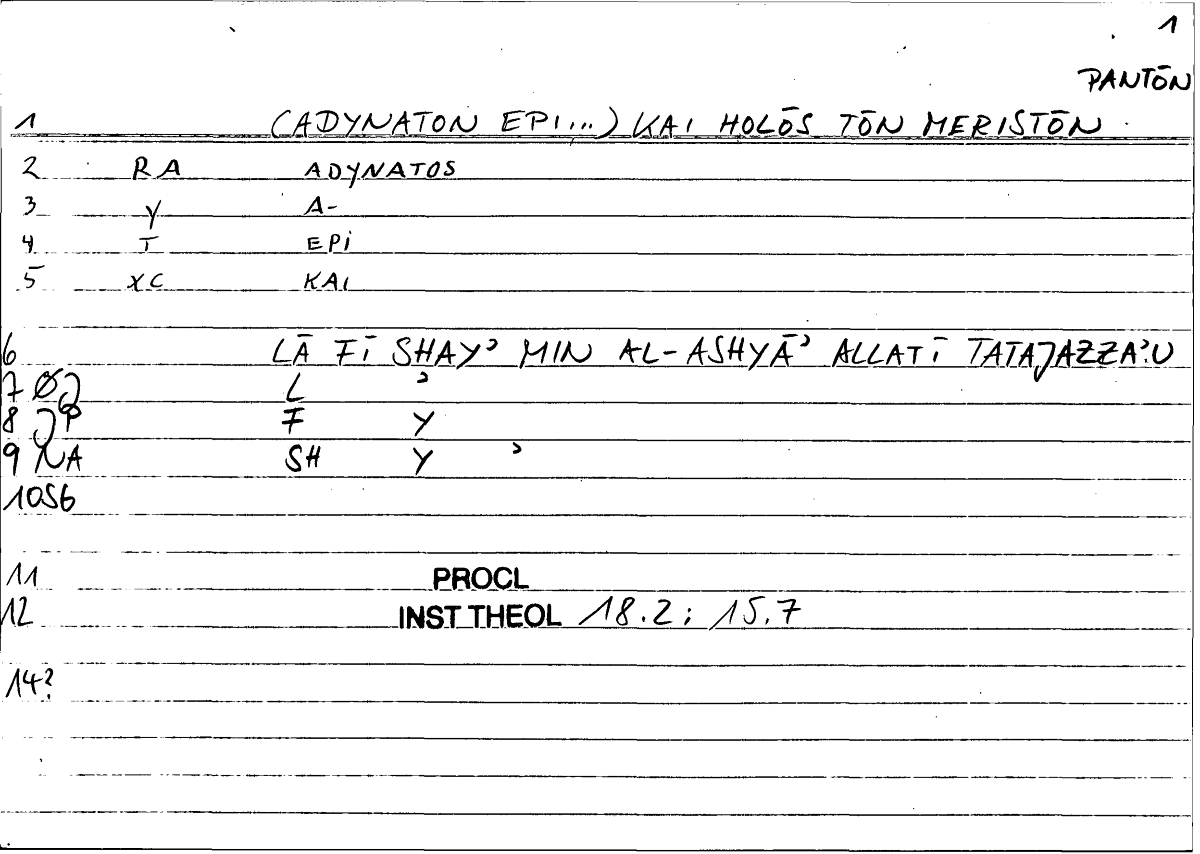 1
PANTŌN
1 (ADYNATON EPI...) KAI HOLŌS TŌN MERISTŌN
2 RA ADYNATOS
3 Y A-
4 T EPI
5 XC KAI
6 LĀ FĪ SHAYʾ MIN AL-ASHYĀʾ ALLATĪ TATAJAZZAʾU
7 ØJ L ʾ
8 JP F Y
9 NA SH Y ʾ
10 S6
11 PROCL
12 INST THEOL 18.2; 15.7
14?